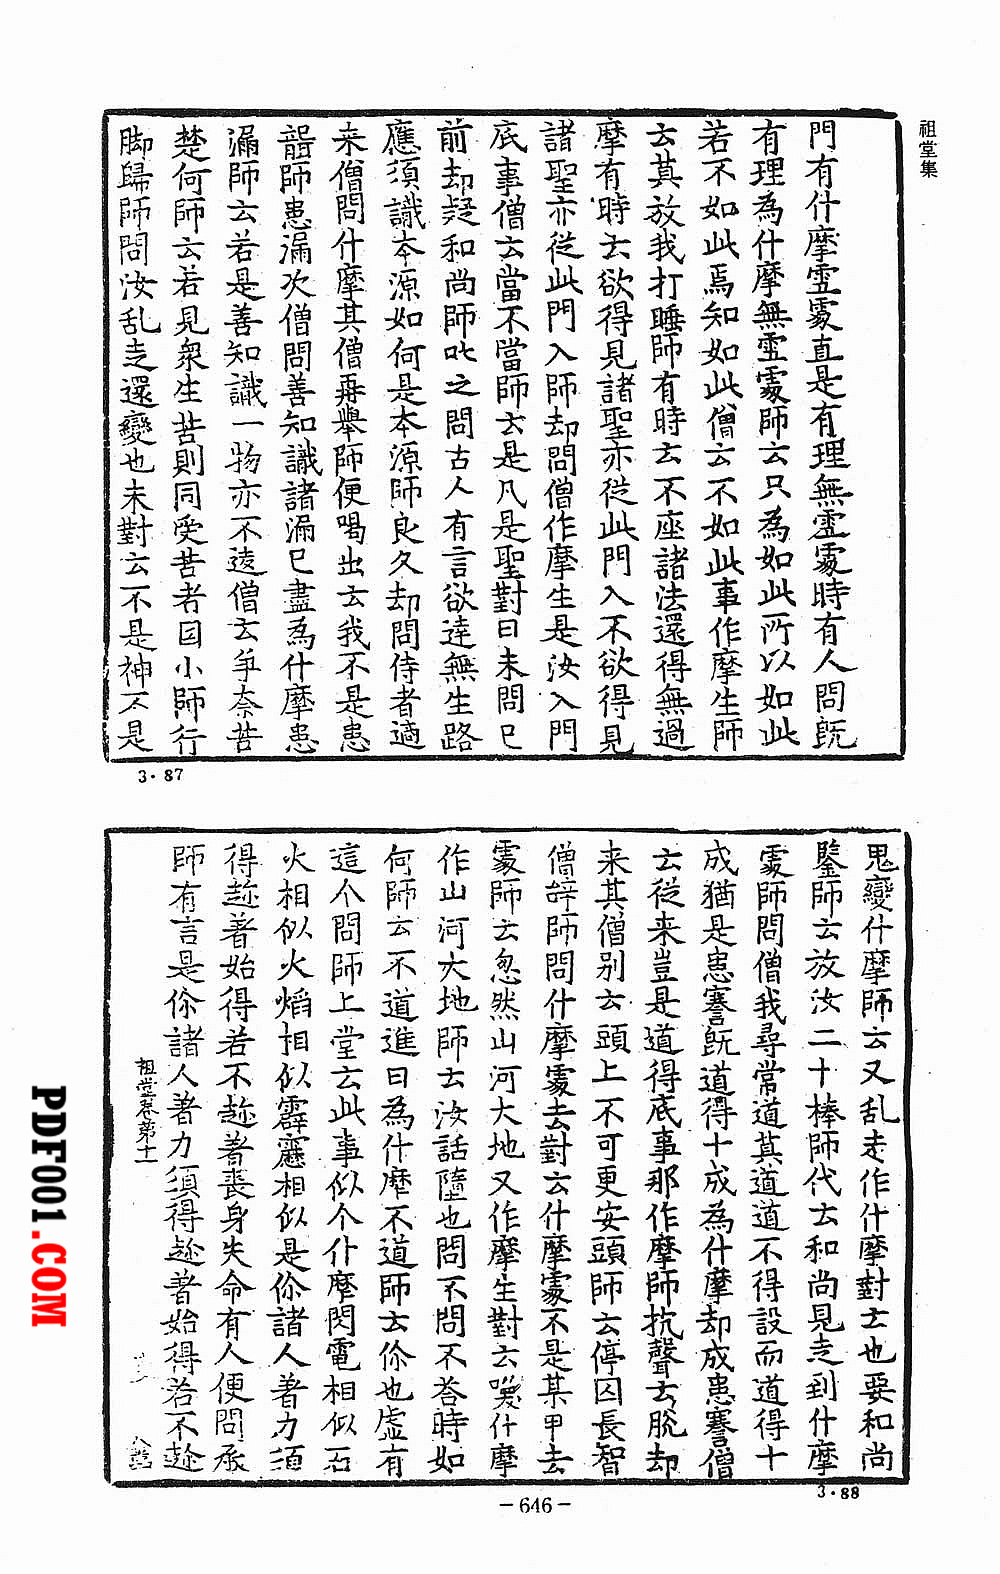 祖堂集
門有什摩霊䖏直是有理無霊䖏時有人問旣
有理為什摩無霊䖏師云只為如此所以如此
若不如此焉知如此僧云不如此事作摩生師
云其放我打睡師有時云不座諸法還得無過
摩有時云欲得見諸聖亦従此門入不欲得見
諸聖亦従此門入師却問僧作摩生是汝入門
底事僧云當不當師云是凡是聖對曰未問已
前却疑和尚師叱之問古人有言欲達無生路
應須識本源如何是本源師良久却問侍者適
来僧問什摩其僧再舉師便喝出云我不是患
聾師患漏次僧問善知識諸漏已盡為什摩患
漏師云若是善知識一物亦不違僧云爭奈苦
楚何師云若見衆生苦則同受苦者因小師行
脚歸師問汝乱走還變也未對云不是神不是
3·87
鬼變什摩師云又乱走作什摩對云也要和尚
鑒師云放汝二十棒師代云和尚見走到什摩
䖏師問僧我尋常道莫道道不得設而道得十
成猶是患謇旣道得十成為什摩却成患謇僧
云従来豈是道得底事那作摩師抗聲云脱却
来其僧別云頭上不可更安頭師云停囚長智
僧辞師問什摩䖏去對云什摩䖏不是某甲去
䖏師云忽然山河大地又作摩生對云喚什摩
作山河大地師云汝話墮也問不問不荅時如
何師云不道進曰為什摩不道師云你也虛有
這个問師上堂云此事似个什摩閃電相似石
火相似火熖相似霹靂相似是你諸人著力須
得趂著始得若不趂著喪身失命有人便問承
師有言是你諸人著力須得趂著始得若不趂
祖堂卷第十一
3·88
－646－
PDF001.COM